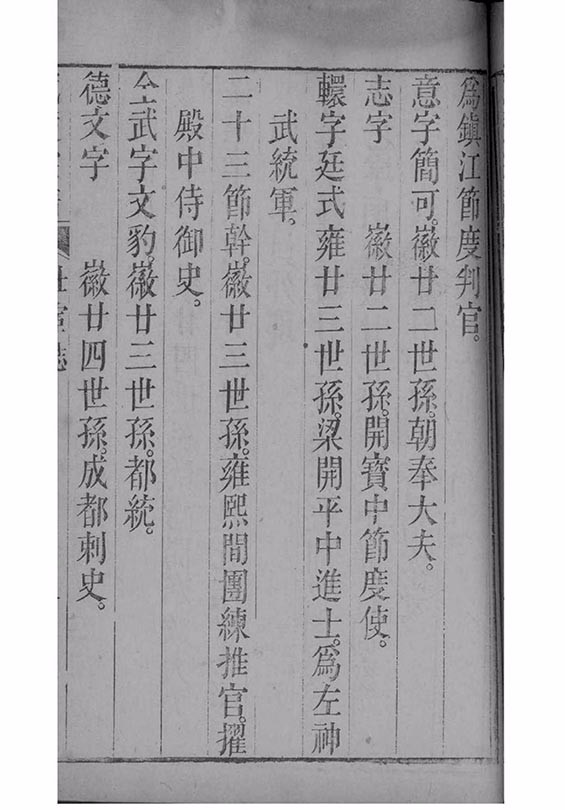 為鎮江節度判官。
意字簡可。徽廿二世孫。朝奉大夫。
志字　徽廿二世孫。開寶中節度使。
轘字廷式雍廿三世孫。梁開平中進士。為左神
武統軍。
二十三節幹。徽廿三世孫。雍熙間團練推官。擢
殿中侍御史。
全武字文豹。徽廿三世孫。都統。
德文字　徽廿四世孫。成都刺史。